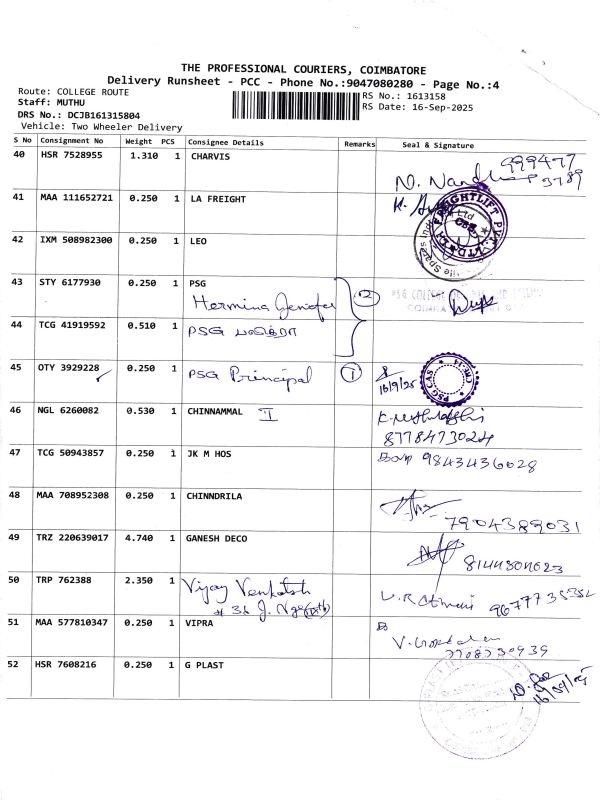 THE PROFESSIONAL COURIERS, COIMBATORE
Delivery Runsheet - PCC - Phone No.:9047080280 - Page No.:4
Route: COLLEGE ROUTE
Staff: MUTHU
DRS No.: DCJB161315804
Vehicle: Two Wheeler Delivery
RS No.: 1613158
RS Date: 16-Sep-2025
S No Consignment No Weight PCS Consignee Details Remarks Seal & Signature
40 HSR 7528955 1.310 1 CHARVIS 999477
3789
41 MAA 111652721 0.250 1 LA FREIGHT
42 IXM 508982300 0.250 1 LEO
43 STY 6177930 0.250 1 PSG
Hermina Jenifer 2 PSG COLLEGE
44 TCG 41919592 0.510 1 PSG
45 OTY 3929228 0.250 1 PSG Principal 1 16/9/25 PSG CAS
46 NGL 6260082 0.530 1 CHINNAMMAL I
8778473024
47 TCG 50943857 0.250 1 JK M HOS 9843436028
48 MAA 708952308 0.250 1 CHINNDRILA
7904389031
49 TRZ 220639017 4.740 1 GANESH DECO
50 TRP 762388 2.350 1 Vijay Venkatesh
51 MAA 577810347 0.250 1 VIPRA
7708730939
52 HSR 7608216 0.250 1 G PLAST